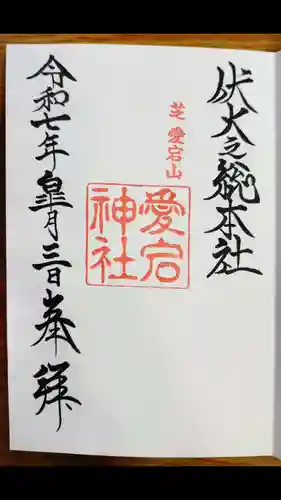 伏火之総本社
芝愛宕山
愛宕
神社
令和七年皐月三日奉拝